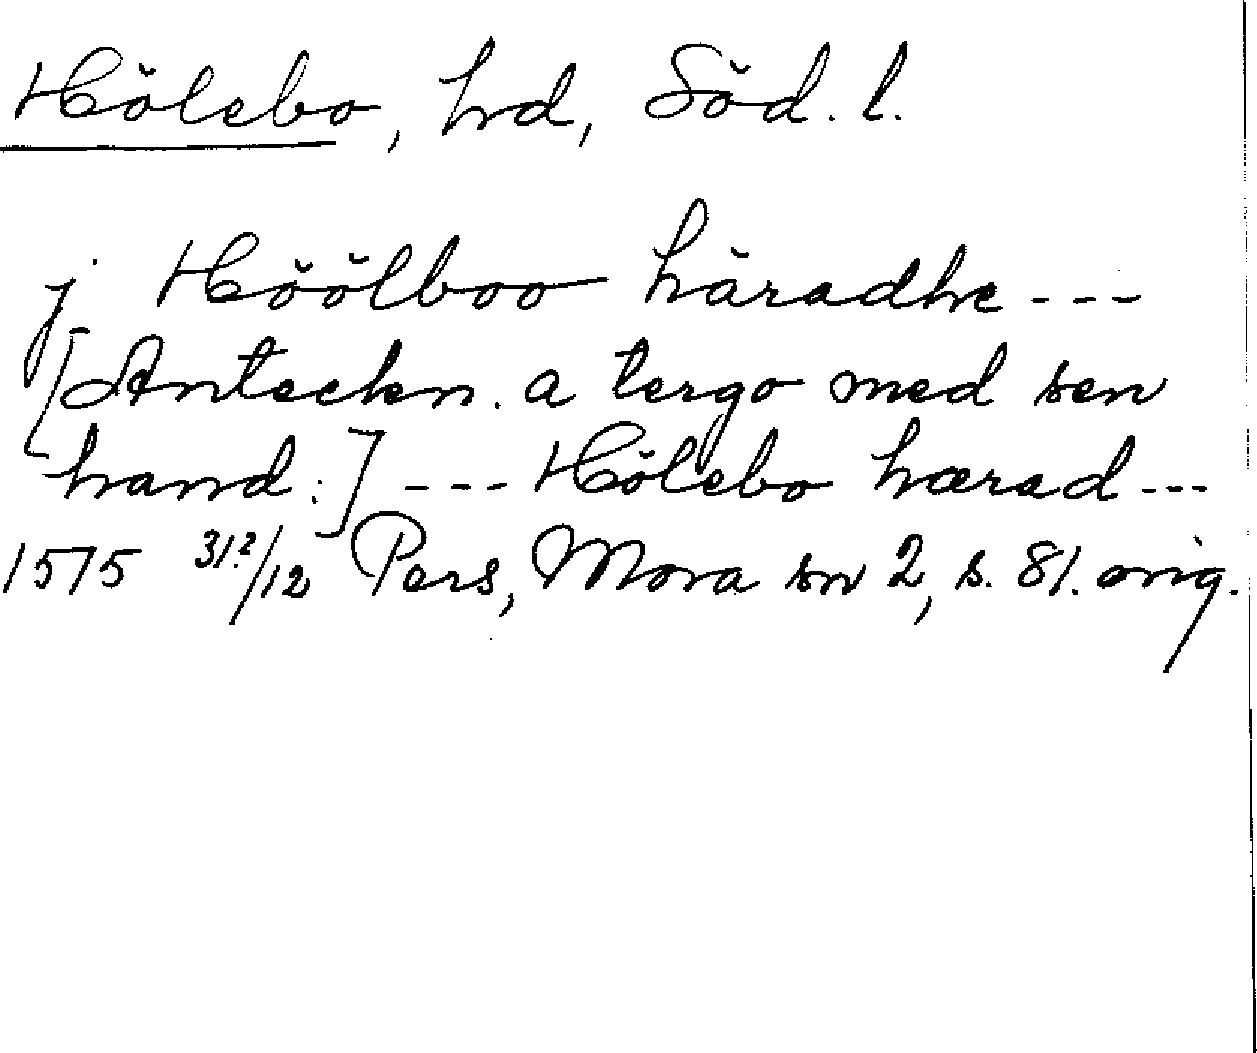 Hölebo, hd, Söd. l.
j Höölboo häradhe ---
[Anteckn. a tergo med sen
hand:] --- Hölebo hærad ---
1575 31?/12 Pers, Mora sn 2, s. 81. orig.